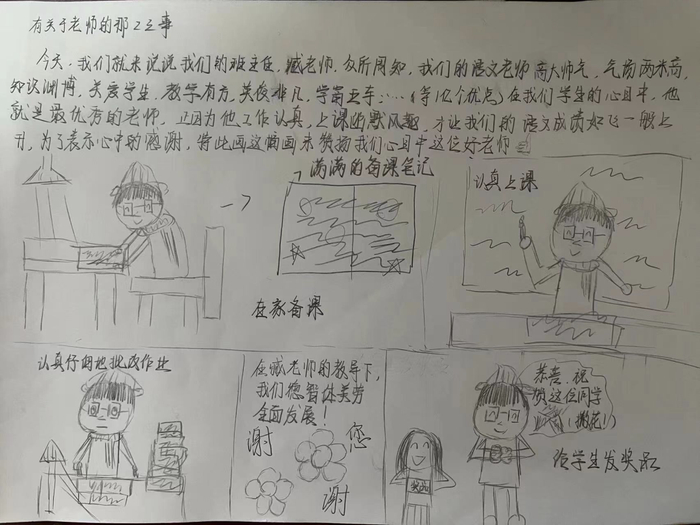 有关于老师的那2之事
今天,我们就来说说我们的班主任,臧老师,众所周知,我们的语文老师高大帅气,气场两米高,
知识渊博,关爱学生,教学有方,英俊非凡,学富五车……(等12个优点)在我们学生的心目中,他
就是最优秀的老师,正因为他工作认真,上课幽默风趣,才让我们的语文成绩如飞一般上
升,为了表示心中的感谢,特此画这幅画来赞扬我们心目中这位好老师
满满的备课笔记
在家备课
认真上课
认真仔细地批改作业
在臧老师的教导下,
我们德智体美劳
全面发展!
谢 您
谢
奖品
恭喜,祝
贺这位同学
(撒花!)
给学生发奖品